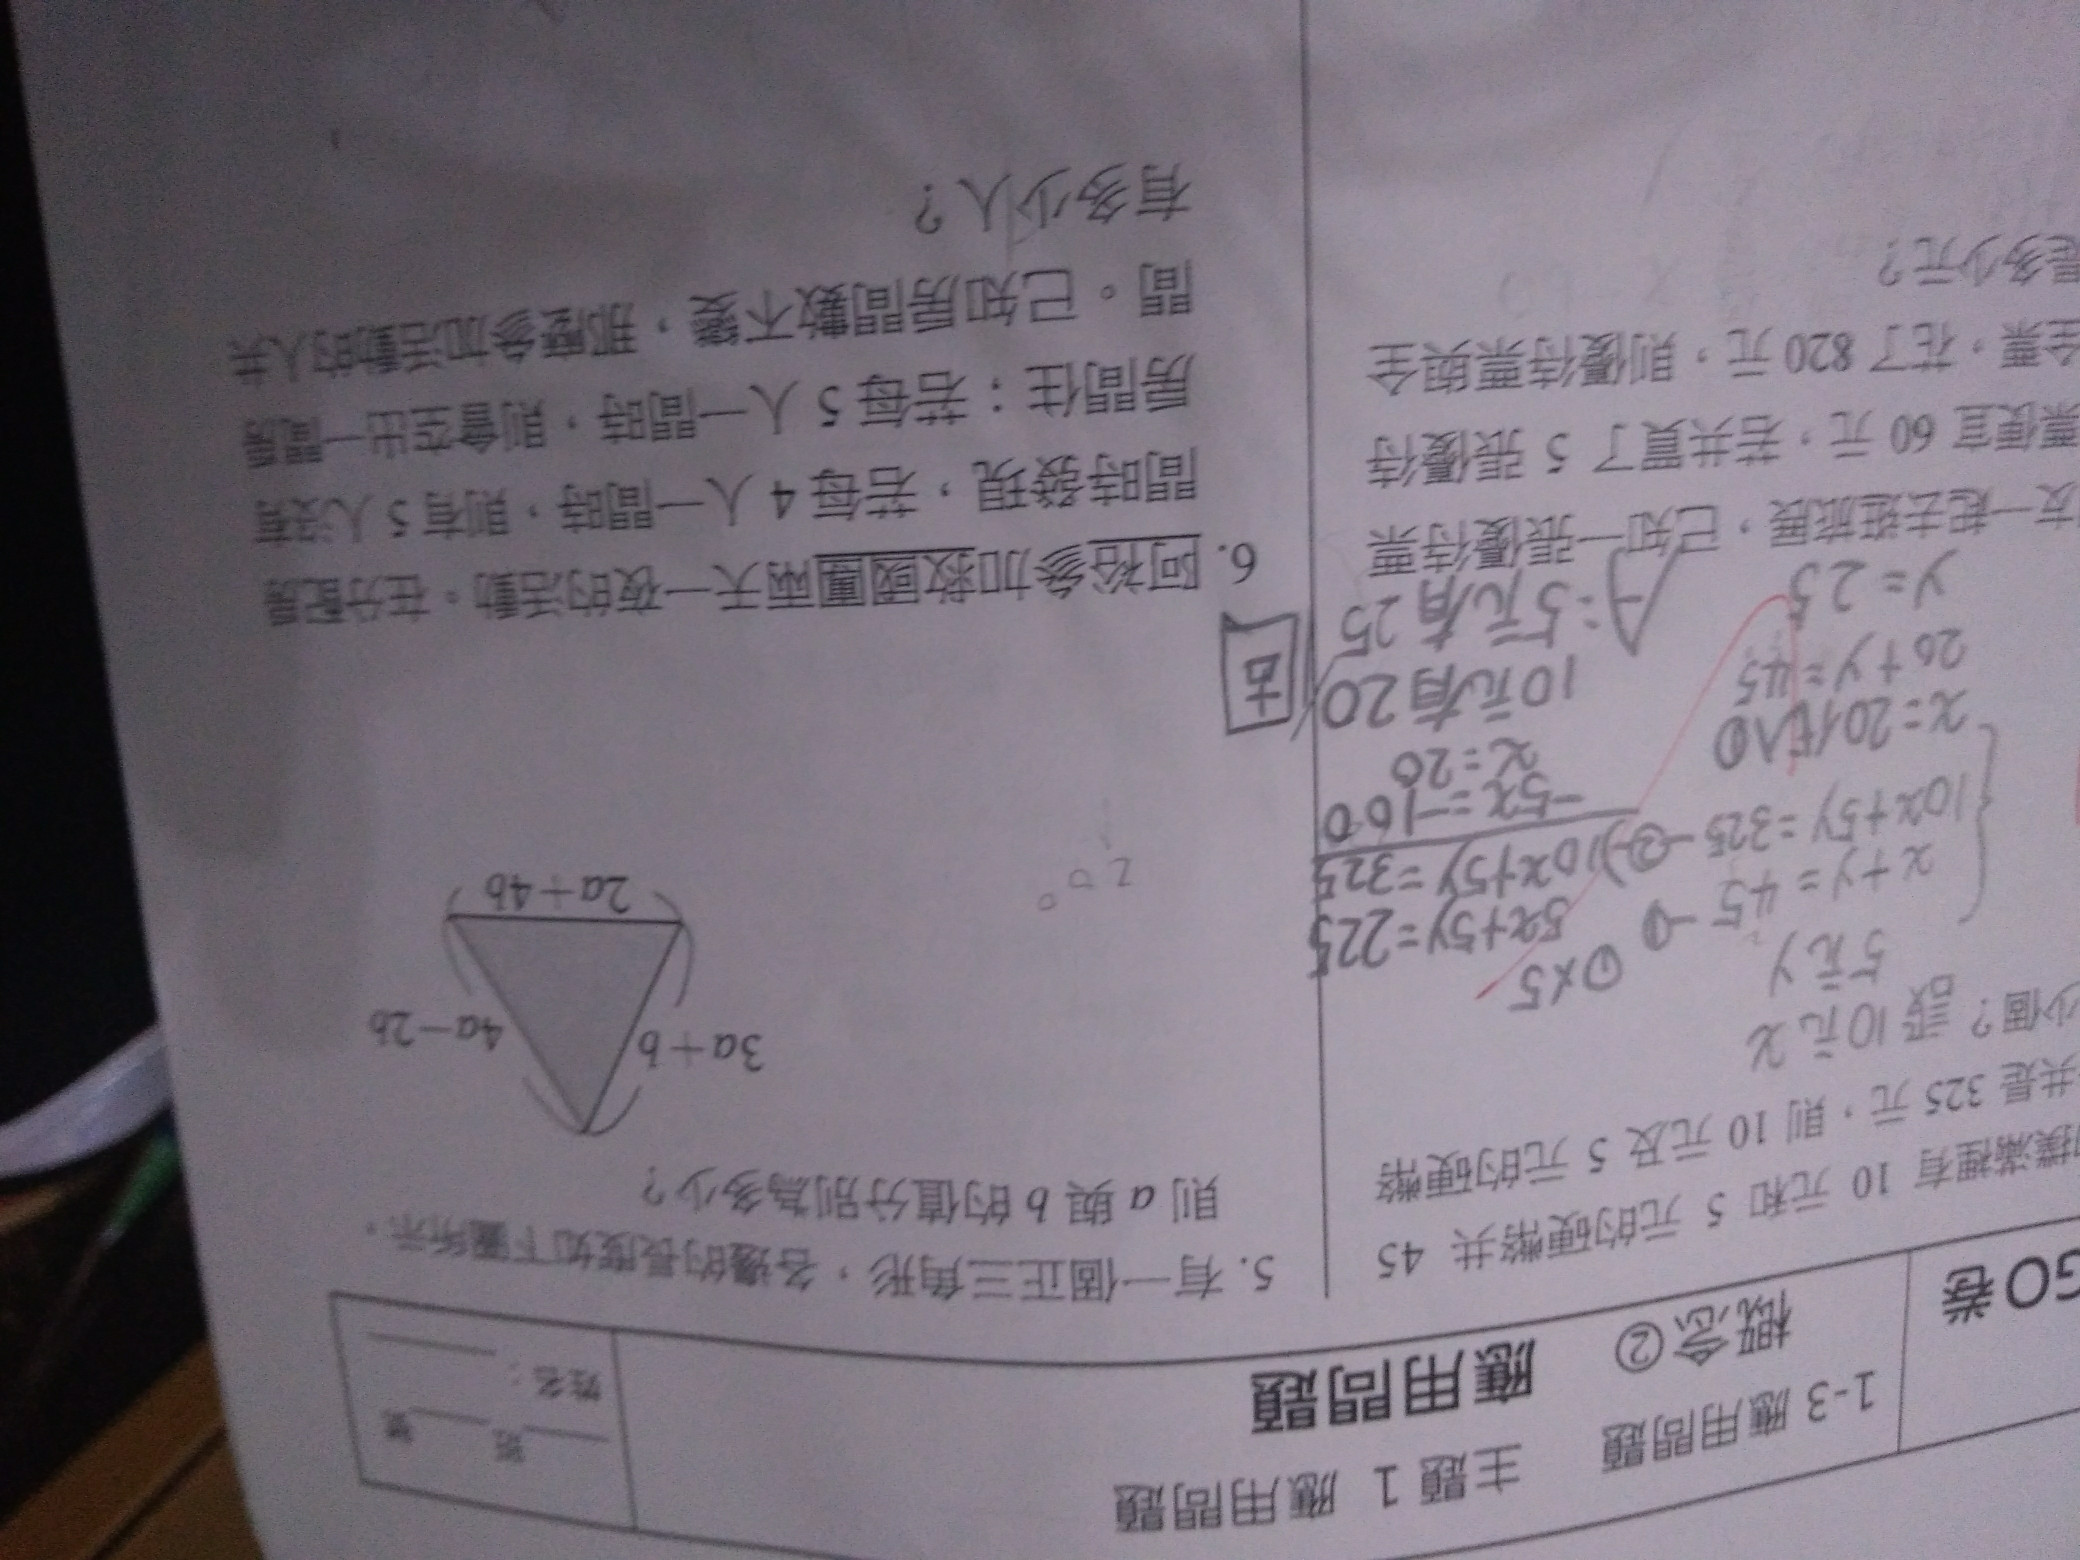 GO卷
1-3 應用問題
概念②
主題 1 應用問題
應用問題
班 號
姓名:
撲滿裡有 10 元和 5 元的硬幣共 45
共是 325 元,則 10 元及 5 元的硬幣
少個? 設10元x
5元y
x+y=45-①
10x+5y=325-②
x=20代入①
20+y=45
y=25
①×5
5x+5y=225
-)10x+5y=325
-5x=-100
x=20
10元有20
A=5元有25
友一起去逛旅展,已知一張優待票
票便宜 60 元,若共買了 5 張優待
全票,花了 820 元,則優待票與全
是多少元?
5. 有一個正三角形,各邊的長度如下圖所示。
則 a 與 b 的值分別為多少?
3a+b
4a-2b
2a+4b
古
6. 阿裕參加救國團兩天一夜的活動。在分配房
間時發現,若每 4 人一間時,則有 5 人沒有
房間住;若每 5 人一間時,則會空出一間房
間。已知房間數不變,那麼參加活動的人共
有多少人?